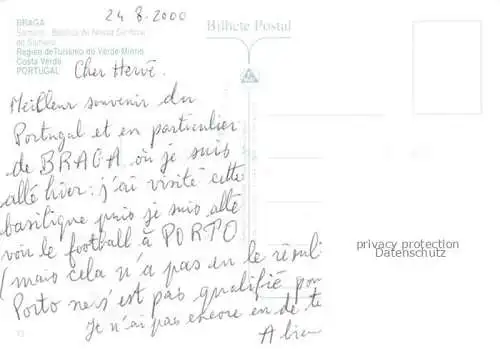 24 8. 2000
BRAGA
Sameiro - Basílica de Nossa Senhora
do Sameiro
Região de Turismo do Verde Minho
Costa Verde
PORTUGAL
Bilhete Postal
Cher Hervé.
Meilleur souvenir du
Portugal et en particulier
de BRAGA où je suis
allé hier : j'ai visité cette
basilique puis je suis allé
voir le football à PORTO
(mais cela n'a pas eu le résul
Porto ne s'est pas qualifié pou
Je n'ai pas encore eu de te
A bien
privacy protection
Datenschutz